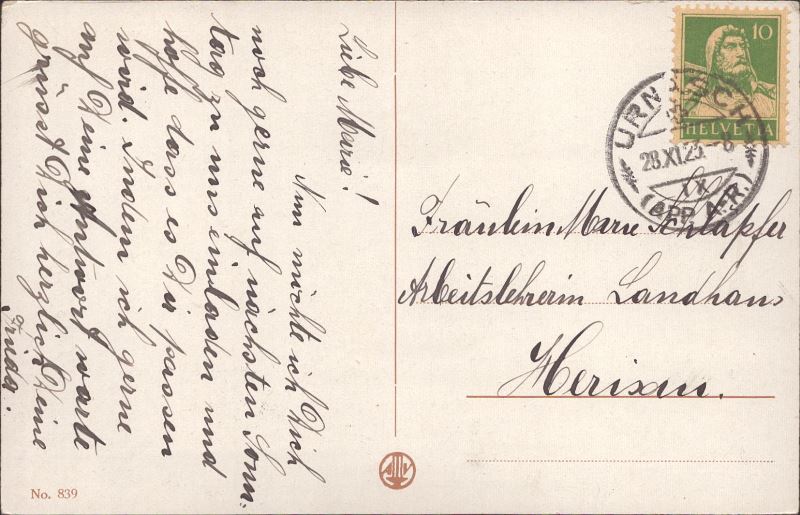 Liebe Marie!
Nun möchte ich Dich
noch gerne auf nächsten Sonn-
tag zu uns einladen und
hoffe dass es Dir passen
wird. Indem ich gerne
auf Deine Antwort warte
grüsset Dich herzlich Deine
Trudi.
No. 839
10
HELVETIA
URNÄSCH
28.XI.23.-8
(APP. A.-R.)
Fräulein Marie Schläpfer
Arbeitslehrerin Landhaus
Herisau.